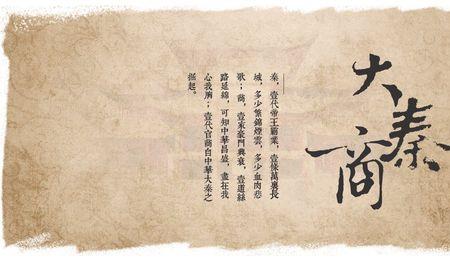 大秦商
秦，壹代帝王霸業，壹條萬裏長
城，多少繁錦煙雲，多少血肉悲
歌；商，壹家豪門興衰，壹道絲
路延綿，可知中華昌盛，盡在我
心我胸；壹代官商自中華大秦之
掘起。